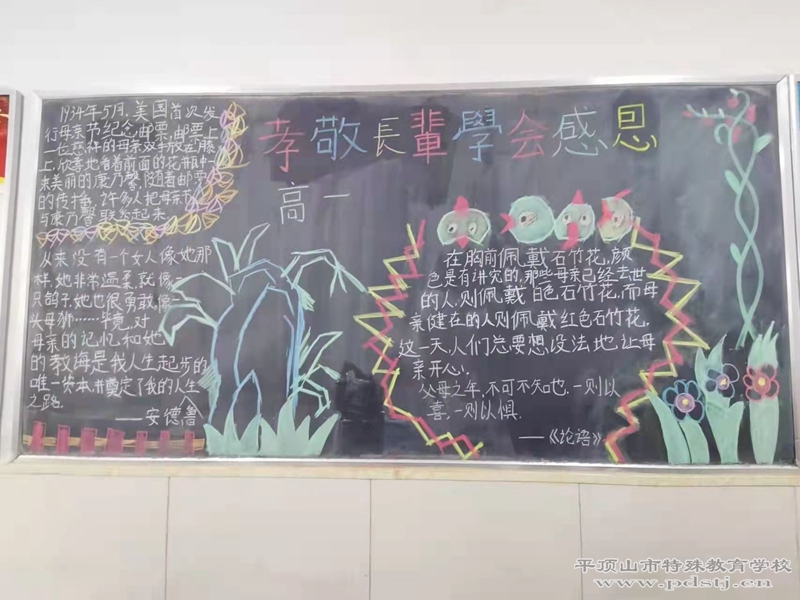 孝敬長輩學会感恩
高一
1934年5月,美国首次发
行母亲节纪念邮票,邮票上
一位慈祥的母亲双手放在膝
上,欣喜地看着前面的花瓶中一
束美丽的康乃馨,随着邮票
的传播,许多人把母亲节
与康乃馨联系起来
从来没有一个女人像她那
样,她非常温柔,就像一
只鸽子,她也很勇敢,像一
头母狮……毕竟,对
母亲的记忆和她
的教诲是我人生起步的
唯一资本,并奠定了我的人生
之路.
——安德鲁
在胸前佩戴石竹花,颜
色是有讲究的,那些母亲已经去世
的人,则佩戴白色石竹花,而母
亲健在的人则佩戴红色石竹花,
这一天,人们总要想设法地让母
亲开心.
父母之年,不可不知也,一则以
喜,一则以惧.
——《论语》
平顶山市特殊教育学校
www.pdstj.cn